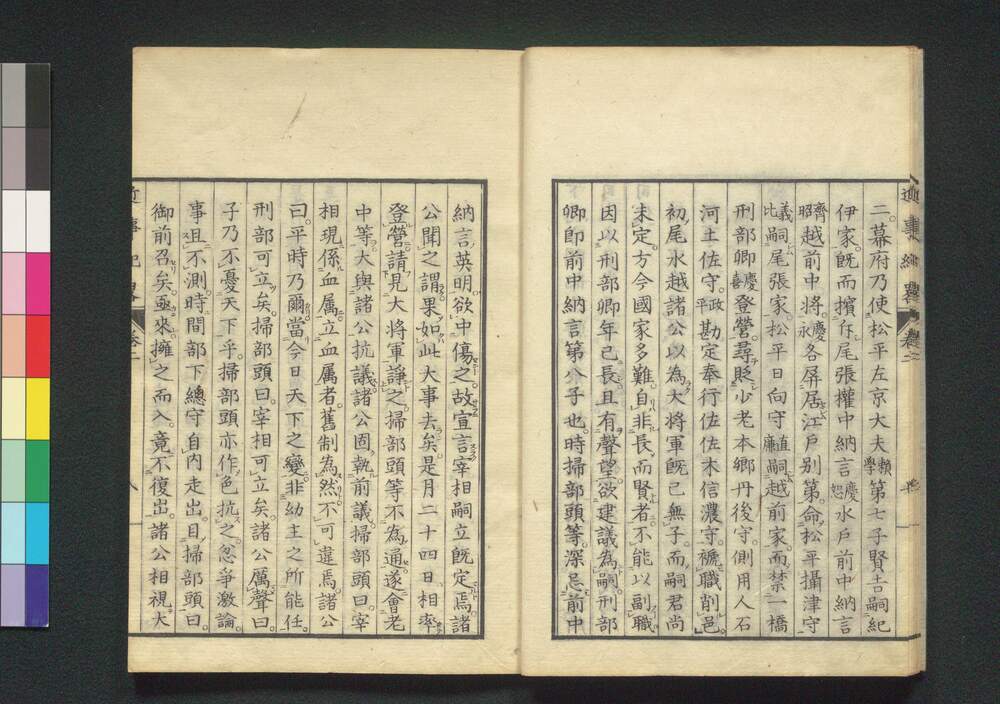 二。幕府乃使松平左京大夫頼學第七子賢吉嗣紀
伊家。既而擯斥尾張權中納言慶恕水戸前中納言
齊昭越前中將慶永各屏居江戸別第。命松平攝津守
義比嗣尾張家。松平日向守直廉嗣越前家。而禁一橋
刑部卿慶喜登營。尋貶少老本郷丹後守。側用人石
河土佐守。政平勘定奉行佐佐木信濃守。褫職削邑。
初尾水越諸公以為大將軍既已無子。而嗣君尚
未定。方今國家多難。自非長而賢者。不能以副職
因以刑部卿年已長且有聲望。欲建議為嗣。刑部
卿卽前中納言第八子也。時掃部頭等深忌前中
納言英明。欲中傷之。故宣言宰相嗣立既定焉。諸
公聞之謂。果如此大事去矣。是月二十四日。相率
登營請見大將軍諍之。掃部頭等不為通。遂會老
中等。大與諸公抗議。諸公固執前議。掃部頭曰。宰
相現係血属。立血属者。舊制為然。不可違焉。諸公
曰。平時乃爾。當今日天下之變。非幼主之所能任。
刑部可立矣。掃部頭曰。宰相可立矣。諸公厲聲曰。
子乃不憂天下乎。掃部頭亦作色抗之。忿爭激論。
事且不測。時間部下總守自内走出。目掃部頭曰。
御前召矣。亟來。擁之而入。竟不復出。諸公相視大
近事紀畧
卷二
八